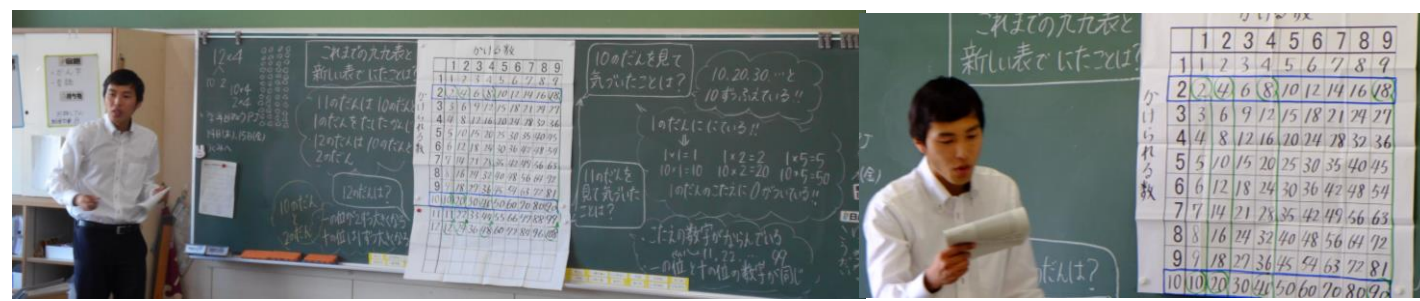 12×4
10 2
10×4
2×4
これまでの九九表と
新しい表でにたことは?
11のだんは10のだんと
1のだんをたした
12のだんは10のだんと
2のだん
12のだんは?
10のだん
と
2のだん
一の位が2ずつ大きくなる
十の位は1ずつ大きくなる
かける数
かけられる数
1 2 3 4 5 6 7 8 9
1 1 2 3 4 5 6 7 8 9
2 2 4 6 8 10 12 14 16 18
3 3 6 9 12 15 18 21 24 27
4 4 8 12 16 20 24 28 32 36
5 5 10 15 20 25 30 35 40 45
6 6 12 18 24 30 36 42 48 54
7 7 14 21 28 35 42 49 56 63
8 8 16 24 32 40 48 56 64 72
9 9 18 27 36 45 54 63 72 81
10 10 20 30 40 50 60 70 80 90
11 11 22 33 44 55 66 77 88 99
12 12 24 36 48 60 72 84 96 108
10のだんを見て
気づいたことは?
10.20.30…と
10ずつふえている!!
1のだんににている!!
1×1=1 1×2=2 1×5=5
10×1=10 10×2=20 10×5=50
1のだんのこたえに0がついている!!
11のだんを
見て気づいた
ことは?
こたえの数字がならんでいる
11.22.… 99
一の位と十の位の数字が同じ
これまでの九九表と
新しい表でにたことは?
だんは?
かける数
かけられる数
1 2 3 4 5 6 7 8 9
1 1 2 3 4 5 6 7 8 9
2 2 4 6 8 10 12 14 16 18
3 3 6 9 12 15 18 21 24 27
4 4 8 12 16 20 24 28 32 36
5 5 10 15 20 25 30 35 40 45
6 6 12 18 24 30 36 42 48 54
7 7 14 21 28 35 42 49 56 63
8 8 16 24 32 40 48 56 64 72
9 9 18 27 36 45 54 63 72 81
10 10 20 30 40 50 60 70 80 90